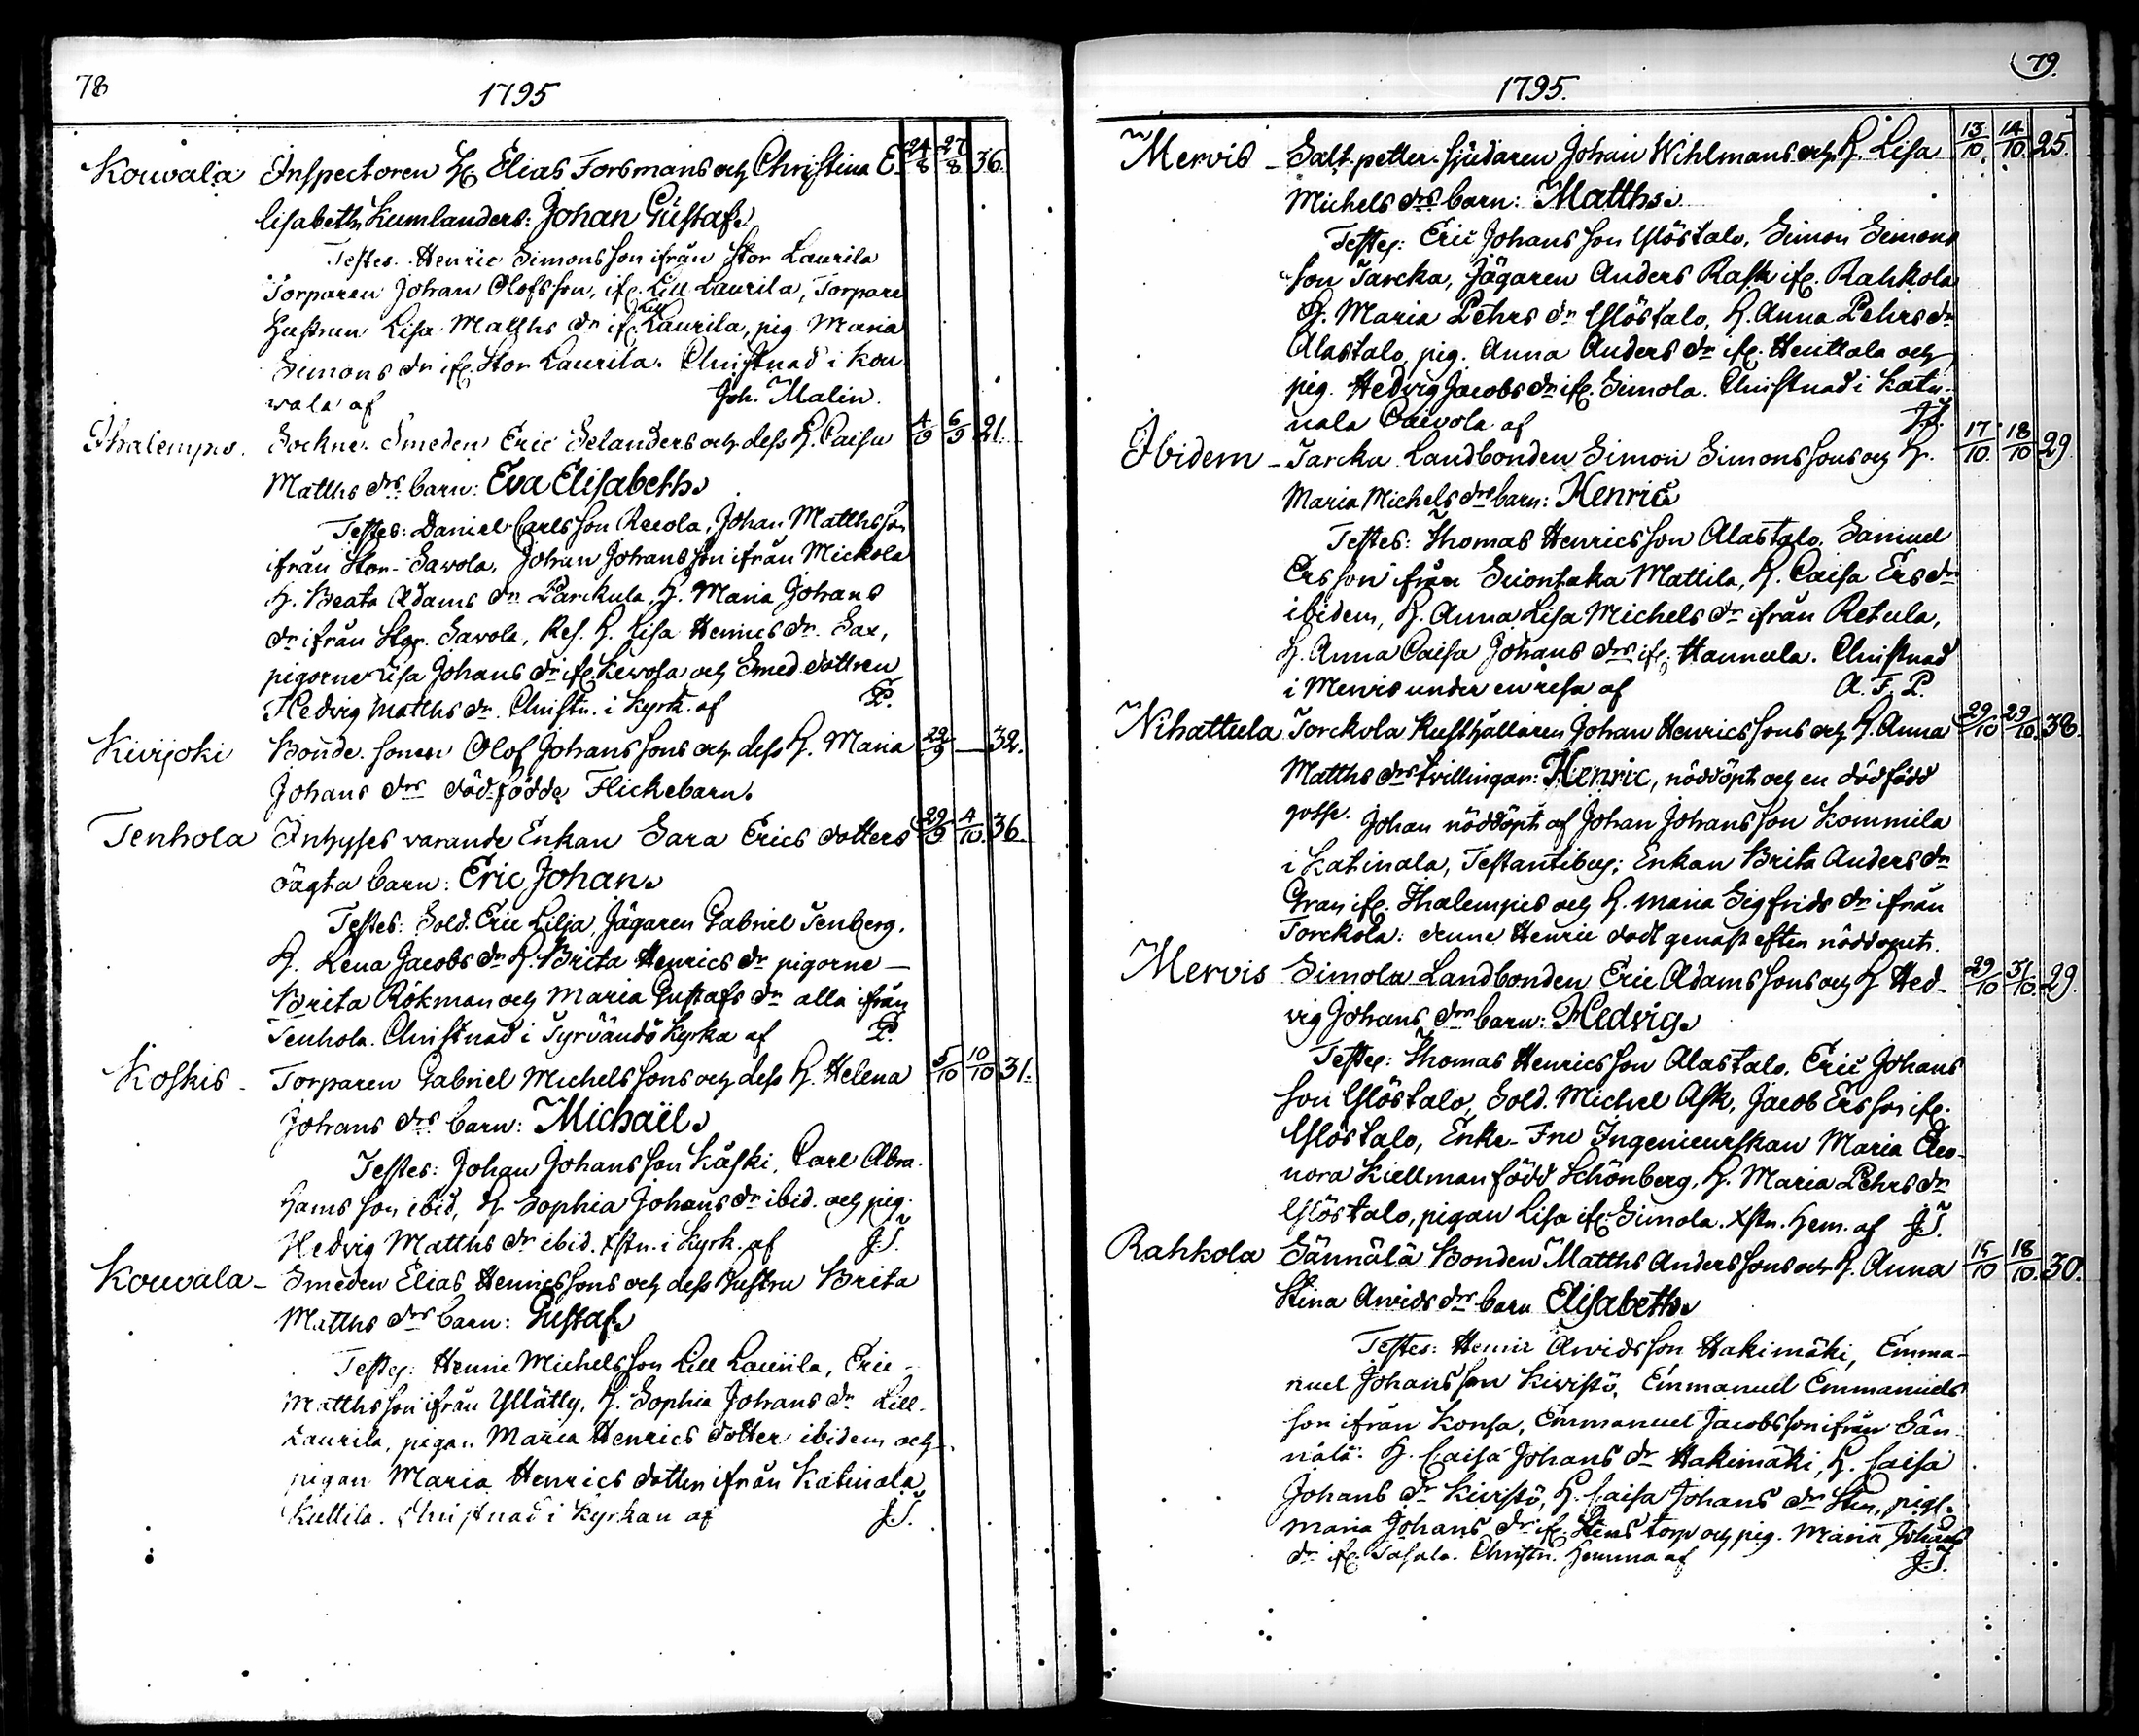 78
1795
24/8 27/8 36.
Kouvala Inspectoren H. Elias Forsmans och Christina E-
lisabeth Kumlanders: Johan Gustaf.
Testes. Henric Simonsson ifrån Stor Laurila
Torparen Johan Olofsson, ifr. Lill Laurila, Torpare
Hustrun Lisa Matths dr ifr. Lill Laurila, pig. Maria
Simons dr ifr. Stor Laurila. Christnad i Kou
vala af Joh. Malin.
Ihalempis. Sockne Smeden Eric Selanders och dess H. Caisa 4/9 6/9 21.
Matths drs barn: Eva Elisabeth.
Testes: Daniel Carlsson Recola, Johan Matthsson
ifrån Stor-Savola, Johan Johansson ifrån Mickola
H. Beata Adams dr Parckula, H. Maria Johans
dr ifrån Stor Savola, Res. H. Lisa Henrics dr. Sax,
pigorne Lisa Johans dr ifr. Kevola och Smed dottren
Hedvig Matths dr. Christn. i Kyrk. af P.
Kivijoki Bonde sonen Olof Johanssons och dess H. Maria 22/9 — 32.
Johans drs död födde Flickebarn.
Tenhola Inhyses varande Enkan Sara Erics dotters 29/9 4/10. 36.
oägta barn: Eric Johan.
Testes: Sold. Eric Lilja, Jägaren Gabriel Tenberg.
H. Lena Jacobs dr H. Brita Henrics dr pigorne —
Brita Rökman och Maria Gustafs dr alla ifrån
Tenhola. Christnad i Tyrvändö Kyrka af P.
Koskis - Torparen Gabriel Michelssons och dess H. Helena 5/10 10/10 31.
Johans drs barn: Michaël.
Testes: Johan Johansson Kåski, Carl Abra-
hamsson ibid, H. Sophia Johans dr ibid. och pig.
Hedvig Matths dr ibid. Xstn. i Kyrk. af J.T.
Kouvala - Smeden Elias Henricssons och dess Hustru Brita
Matths drs barn: Gustaf.
Testes: Henric Michelsson Lill Laurila, Eric
Matthsson ifrån Yllätty, H. Sophia Johans dr Lill-
Laurila, pigan Maria Henrics dotter ibidem och
pigan Maria Henrics dotter ifrån Katinala
Kullila. Christnad i Kyrkan af J.T.
79.
1795.
Mervis - Salt-petter-sjudaren Johan Wihlmans och H. Lisa 13/10. 14/10. 25.
Michels drs barn: Matths.
Testes: Eric Johansson Ylöstalo, Simon Simons
son Jarcka, Jägaren Anders Rask ifr. Rahkola
H. Maria Pehrs dr Ylöstalo, H. Anna Pehrs dr
Alastalo, pig. Anna Anders dr ifr. Henttala och
pig. Hedvig Jacobs dr ifr. Simola. Christnad i Kati-
nala Caivola af J.T.
Ibidem - Jarcka Landbonden Simon Simonssons och H. 17/10. 18/10 29.
Maria Michels drs barn: Henric
Testes: Thomas Henricsson Alastalo, Samuel
Ersson ifrån Suontaka Mattila, H. Caisa Ers dr
ibidem, H. Anna Lisa Michels dr ifrån Retula,
H. Anna Caisa Johans drs ifr. Hannula. Christnad
i Mervis under en resa af A. F. P.
Nihattula Torckola Rusthållaren Johan Henricssons och H. Anna 29/10 29/10. 38.
Matths drs tvillingar: Henric, nöddöpt och en dödfödd
gosse. Johan nöddöpt af Johan Johansson Kommila
i Katinala, Testantibus: Enkan Brita Anders dr
Gran ifr. Ihalempis och H. Maria Sigfrids dr ifrån
Torckola: denne Henric dödt genast efter nöddopet.
Mervis Simola Landbonden Eric Adamssons och H. Hed- 29/10 31/10. 29.
vig Johans drs barn: Hedvig.
Testes: Thomas Henricsson Alastalo, Eric Johans
son Ylöstalo, Sold. Michel Ask, Jacob Ersson ifr.
Ylöstalo, Enke-Fru Ingenieurskan Maria Eleo-
nora Kiellman född Schönberg, H. Maria Pehrs dr
Ylöstalo, pigan Lisa ifr. Simola. Xstn. hem. af J.T.
Rahkola Sännälä Bonden Matths Anderssons och H. Anna 15/10 18/10. 30.
Stina Arvids drs barn Elisabeth.
Testes: Henric Arvidsson Hakimäki, Emma-
nuel Johansson Kivistö, Emmanuel Emmanuels
son ifrån Konsa, Emmanuel Jacobsson ifrån Sän
nälä: H. Caisa Johans dr Hakimäki, H. Caisa
Johans dr Kivistö, H. Caisa Johans dr Sten, pig.
Maria Johans dr ifr. Stens torp och pig. Maria Johans
dr ifr. Christn. hemma af J.T.